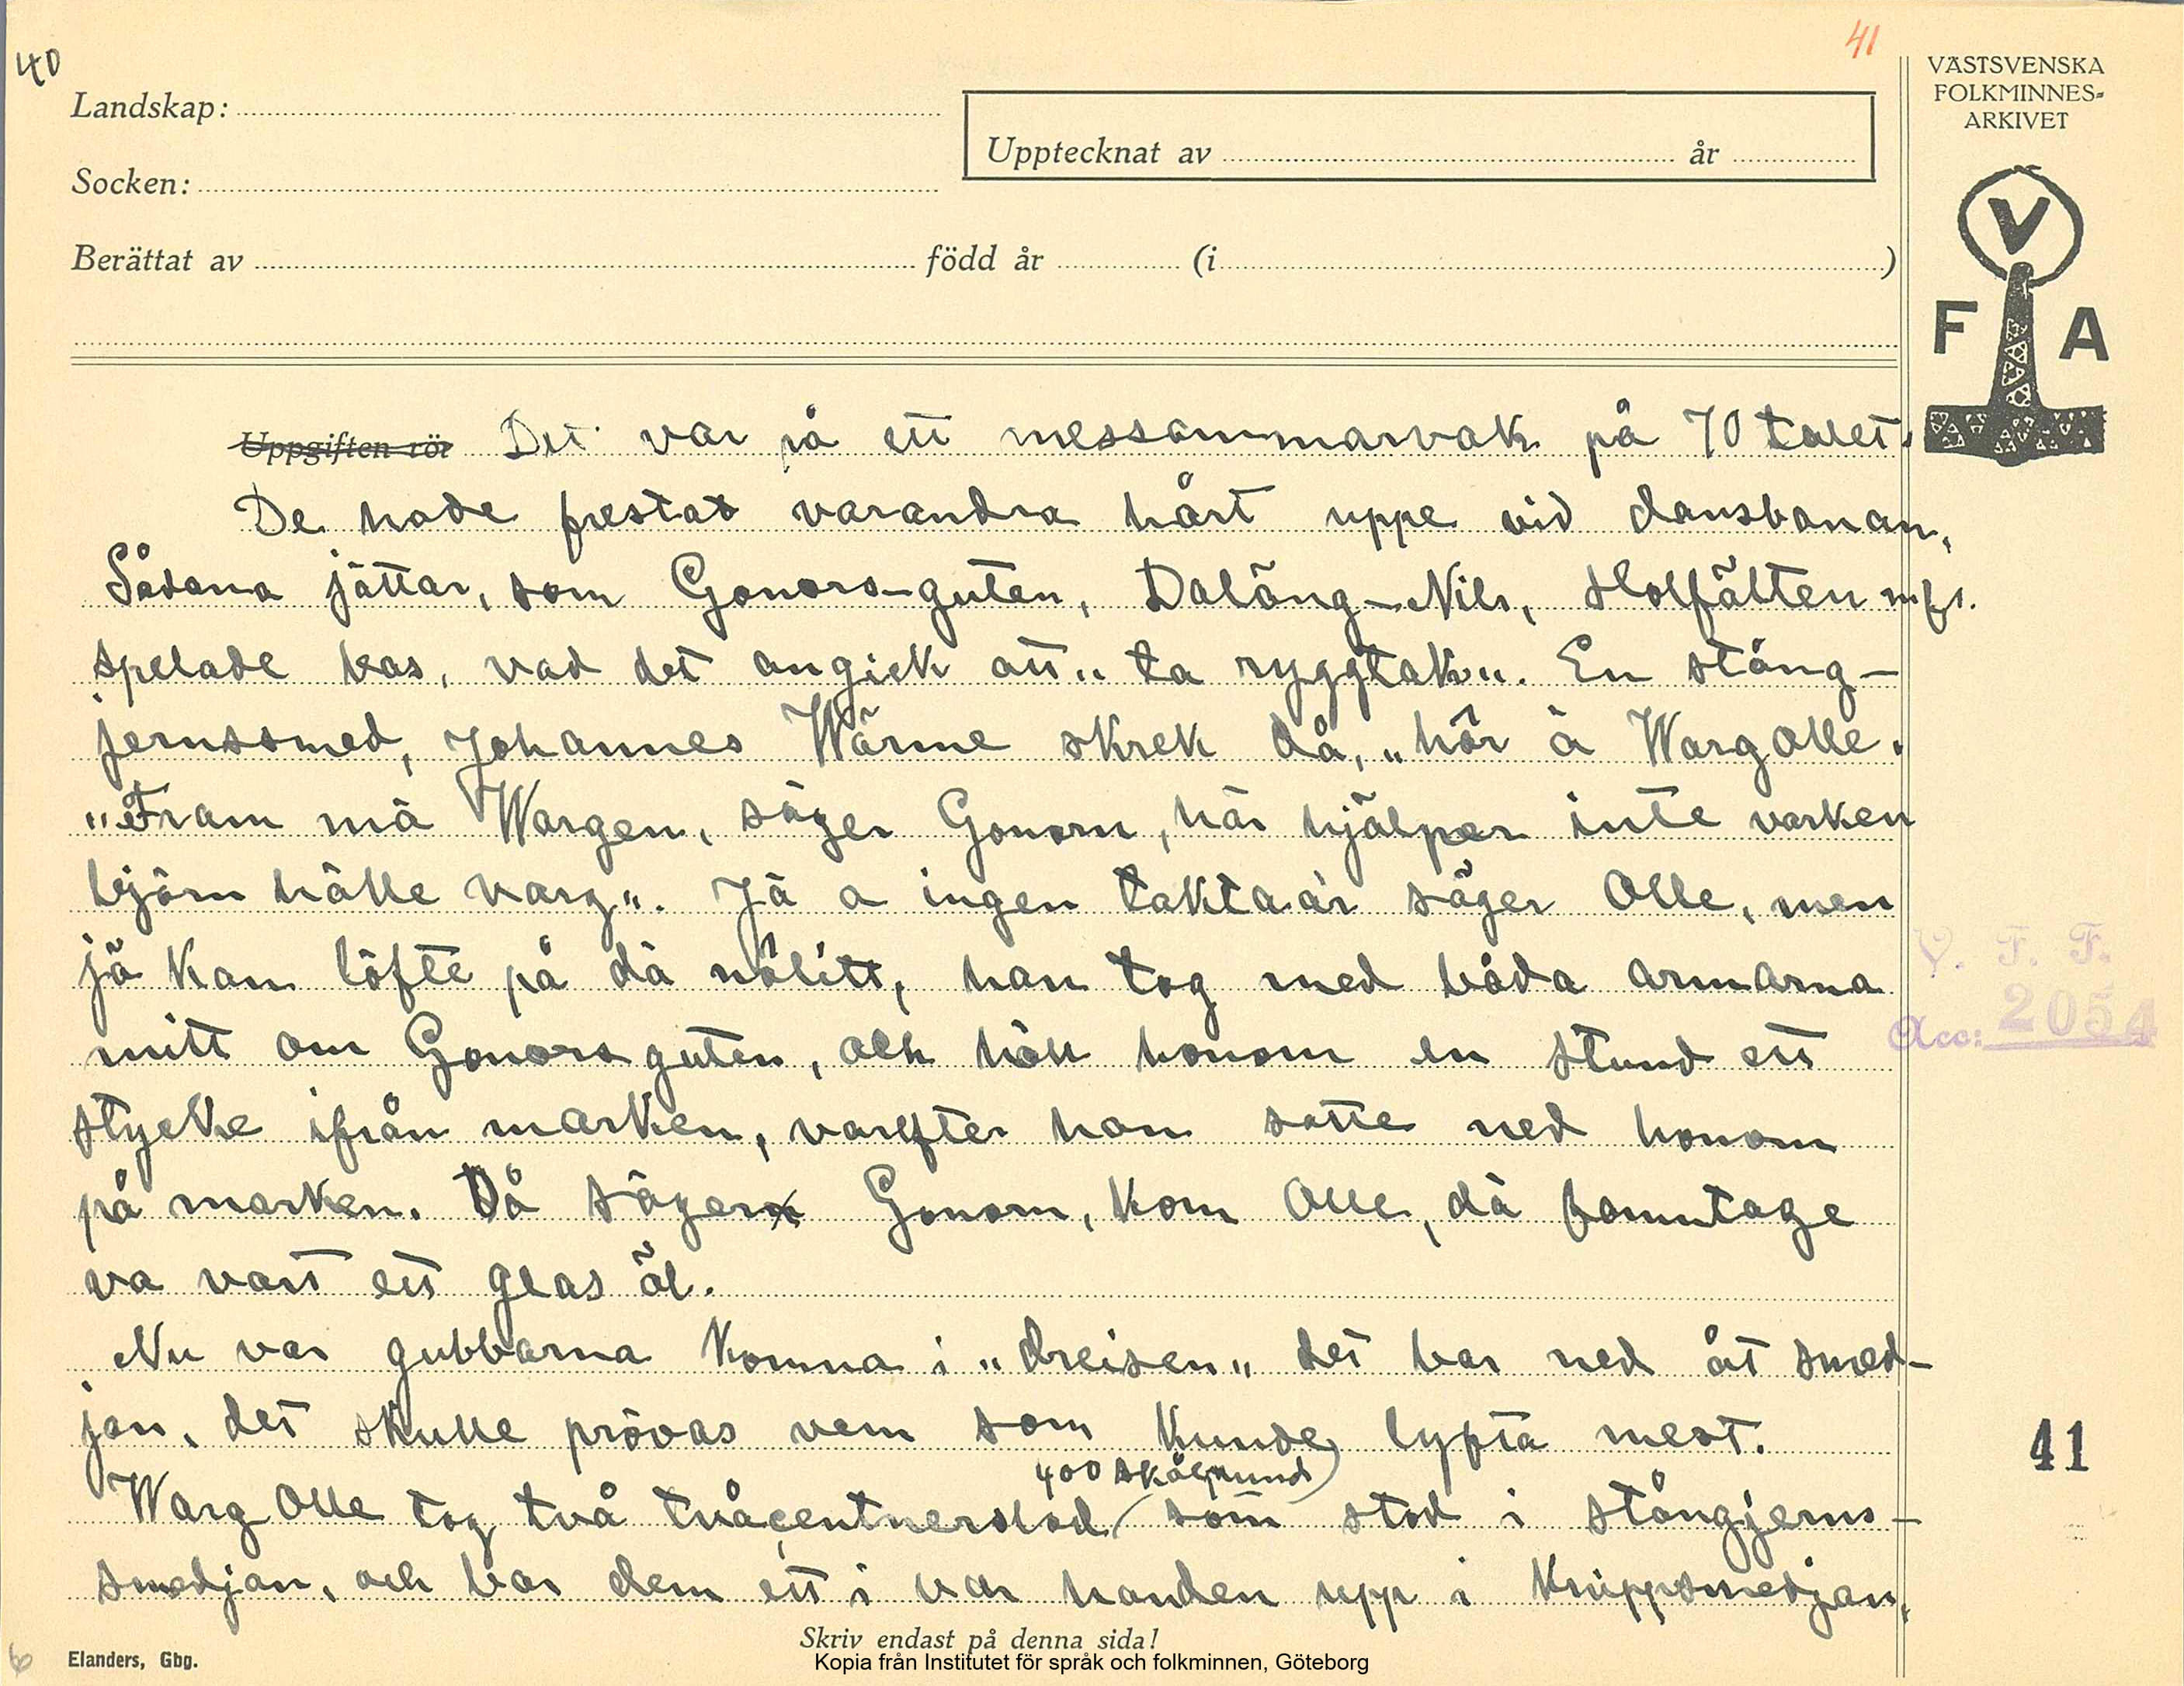 40
41
Landskap:
Upptecknat av år
Socken:
Berättat av född år (i )
VÄSTSVENSKA
FOLKMINNES-
ARKIVET
V
F A
Uppgiften rör Det var på ett messommarvak på 70 talet.
De hade frestat varandra hårt uppe vid dansbanan,
Sådana jättar, som Gonors-guten, Daläng-Nils, Holfälten m.fl.
spelade bas, vad det angick att "ta ryggtak". En stång-
jernssmed, Johannes Wärme skrek då, "hör à Warg Olle.
"Fram mä Wargen, säger Gonorn, här hjälper inte varken
björn hälle varg". Jä a ingen taktaär säger Olle, men
jä kan löfte på dä nölitt, han tog med båda armarna
mitt om Gonorsguten, och höll honom en stund ett
stycke ifrån marken, varefter han satte ned honom
på marken. Då säger Gonorn, kom Olle, dä famntage
va vart ett glas öl.
Nu var gubbarna komna i "dreisen" det bar ned åt smed-
jan, det skulle prövas vem som kunde lyfta mest.
400 skålpund)
Warg Olle tog två tvåcentnerslod (som stod i stångjerns-
smedjan, och bar dem ett i var handen upp i knippsmedjan,
V. F. F.
Acc: 2054
41
Skriv endast på denna sida!
6
Elanders, Gbg.
Kopia från Institutet för språk och folkminnen, Göteborg